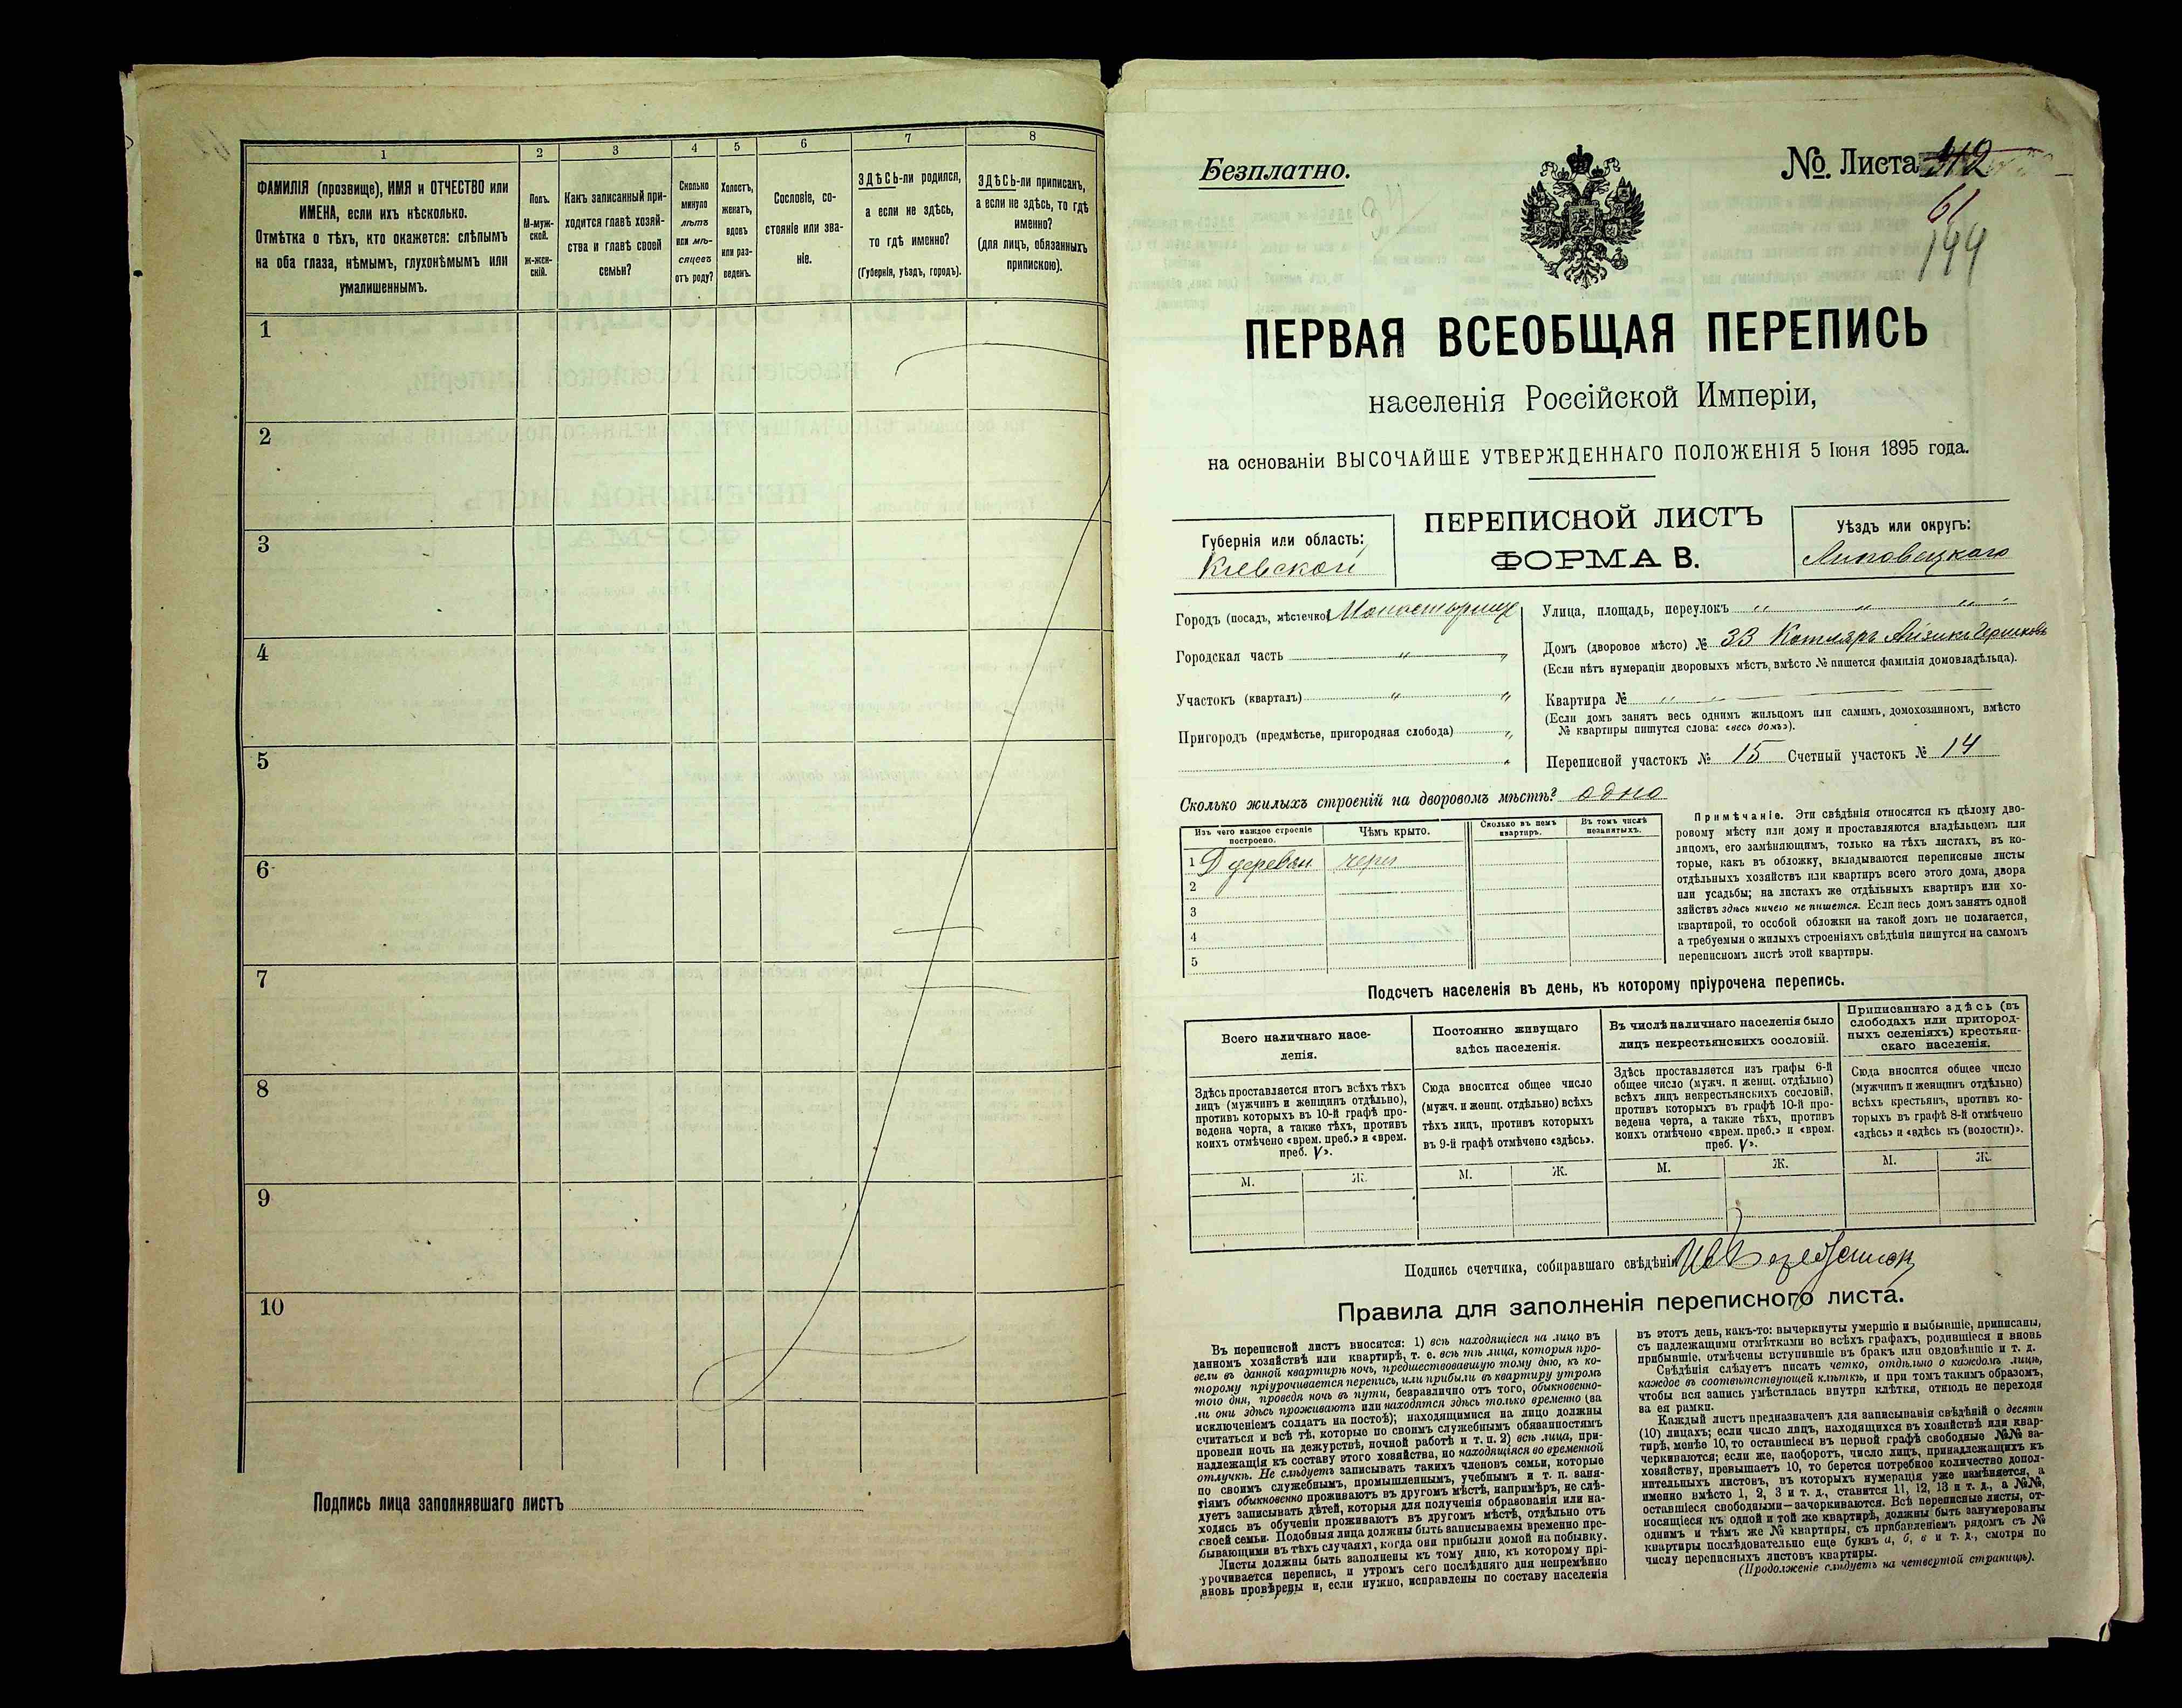 1
2
3
4
5
6
7
8
ФАМИЛІЯ (прозвище), ИМЯ и ОТЧЕСТВО или
ИМЕНА, если ихъ нѣсколько.
Отмѣтка о тѣхъ, кто окажется: слѣпымъ
на оба глаза, нѣмымъ, глухонѣмымъ или
умалишеннымъ.
Полъ.
М-муж-
ской.
Ж-жен-
скій.
Какъ записанный при-
ходится главѣ хозяй-
ства и главѣ своей
семьи?
Сколько
минуло
лѣтъ
или мѣ-
сяцевъ
отъ роду?
Холостъ,
женатъ,
вдовъ
или раз-
веденъ.
Сословіе, со-
стояніе или зва-
ніе.
ЗДѢСЬ-ли родился,
а если не здѣсь,
то гдѣ именно?
(Губернія, уѣздъ, городъ).
ЗДѢСЬ-ли приписанъ,
а если не здѣсь, то гдѣ
именно?
(для лицъ, обязанныхъ
припискою).
1
2
3
4
5
6
7
8
9
10
Подпись лица заполнявшаго листъ
Безплатно.
№. Листа
61
199
ПЕРВАЯ ВСЕОБЩАЯ ПЕРЕПИСЬ
населенія Россійской Имперіи,
на основаніи ВЫСОЧАЙШЕ УТВЕРЖДЕННАГО ПОЛОЖЕНІЯ 5 Іюня 1895 года.
Губернія или область:
Кіевской
ПЕРЕПИСНОЙ ЛИСТЪ
ФОРМА В.
Уѣздъ или округъ:
Липовецкаго
Городъ (посадъ, мѣстечко) Монастырище
Городская часть " "
Участокъ (кварталъ) " "
Пригородъ (предмѣстье, пригородная слобода) "
"
Улица, площадь, переулокъ " " "
Домъ (дворовое мѣсто) № 33 Котляръ
(Если нѣтъ нумераціи дворовыхъ мѣстъ, вмѣсто № пишется фамилія домовладѣльца).
Квартира № " "
(Если домъ занятъ весь однимъ жильцомъ или самимъ, домохозяиномъ, вмѣсто
№ квартиры пишутся слова: «весь домъ»).
Переписной участокъ № 15 Счетный участокъ № 14
Сколько жилыхъ строеній на дворовомъ мѣстѣ? одно
Изъ чего каждое строеніе
построено.
Чѣмъ крыто.
Сколько въ немъ
квартиръ.
Въ томъ числѣ
незанятыхъ.
1 Д деревян череп
2
3
4
5
Примѣчаніе. Эти свѣдѣнія относятся къ цѣлому дво-
ровому мѣсту или дому и проставляются владѣльцемъ или
лицомъ, его замѣняющимъ, только на тѣхъ листахъ, въ ко-
торые, какъ въ обложку, вкладываются переписные листы
отдѣльныхъ хозяйствъ или квартиръ всего этого дома, двора
или усадьбы; на листахъ же отдѣльныхъ квартиръ или хо-
зяйствъ здѣсь ничего не пишется. Если весь домъ занятъ одной
квартирой, то особой обложки на такой домъ не полагается,
а требуемыя о жилыхъ строеніяхъ свѣдѣнія пишутся на самомъ
переписномъ листѣ этой квартиры.
Подсчетъ населенія въ день, къ которому пріурочена перепись.
Всего наличнаго насе-
ленія.
Постоянно живущаго
здѣсь населенія.
Въ числѣ наличнаго населенія было
лицъ некрестьянскихъ сословій.
Приписаннаго здѣсь (въ
слободахъ или пригород-
ныхъ селеніяхъ) крестьян-
скаго населенія.
Здѣсь проставляется итогъ всѣхъ тѣхъ
лицъ (мужчинъ и женщинъ отдѣльно),
противъ которыхъ въ 10-й графѣ про-
ведена черта, а также тѣхъ, противъ
коихъ отмѣчено «врем. преб.» и «врем.
преб. V».
Сюда вносится общее число
(мужч. и женщ. отдѣльно) всѣхъ
тѣхъ лицъ, противъ которыхъ
въ 9-й графѣ отмѣчено «здѣсь».
Здѣсь проставляется изъ графы 6-й
общее число (мужч. и женщ. отдѣльно)
всѣхъ лицъ некрестьянскихъ сословій,
противъ которыхъ въ графѣ 10-й про-
ведена черта, а также тѣхъ, противъ
коихъ отмѣчено «врем. преб.» и «врем.
преб. V».
Сюда вносится общее число
(мужчинъ и женщинъ отдѣльно)
всѣхъ крестьянъ, противъ ко-
торыхъ въ графѣ 8-й отмѣчено
«здѣсь» и «здѣсь къ (волости)».
М. Ж. М. Ж. М. Ж. М. Ж.
Подпись счетчика, собиравшаго свѣдѣнія
Правила для заполненія переписного листа.
Въ переписной листъ вносятся: 1) всѣ находящіеся на лицо въ
данномъ хозяйствѣ или квартирѣ, т. е. всѣ тѣ лица, которыя про-
вели въ данной квартирѣ ночь, предшествовавшую тому дню, къ ко-
торому пріурочивается перепись, или прибыли въ квартиру утромъ
того дня, проведя ночь въ пути, безразлично отъ того, обыкновенно-
ли они здѣсь проживаютъ или находятся здѣсь только временно (за
исключеніемъ солдатъ на постоѣ); находящимися на лицо должны
считаться и всѣ тѣ, которые по своимъ служебнымъ обязанностямъ
провели ночь на дежурствѣ, ночной работѣ и т. п. 2) всѣ лица, при-
надлежащія къ составу этого хозяйства, но находящіяся во временной
отлучкѣ. Не слѣдуетъ записывать такихъ членовъ семьи, которые
по своимъ служебнымъ, промышленнымъ, учебнымъ и т. п. заня-
тіямъ обыкновенно проживаютъ въ другомъ мѣстѣ, напримѣръ, не слѣ-
дуетъ записывать дѣтей, которыя для полученія образованія или на-
ходясь въ обученіи проживаютъ въ другомъ мѣстѣ, отдѣльно отъ
своей семьи. Подобныя лица должны быть записываемы временно пре-
бывающими въ тѣхъ случаяхъ, когда они прибыли домой на побывку.
Листы должны быть заполнены къ тому дню, къ которому прі-
урочивается перепись, и утромъ сего послѣдняго дня непремѣнно
вновь провѣрены и, если нужно, исправлены по составу населенія
въ этотъ день, какъ-то: вычеркнуты умершіе и выбывшіе, приписаны,
съ надлежащими отмѣтками во всѣхъ графахъ, родившіеся и вновь
прибывшіе, отмѣчены вступившіе въ бракъ или овдовѣвшіе и т. д.
Свѣдѣнія слѣдуетъ писать четко, отдѣльно о каждомъ лицѣ,
каждое въ соотвѣтствующей клѣткѣ, и при томъ такимъ образомъ,
чтобы вся запись умѣстилась внутри клѣтки, отнюдь не переходя
за ея рамки.
Каждый листъ предназначенъ для записыванія свѣдѣній о десяти
(10) лицахъ; если число лицъ, находящихся въ хозяйствѣ или квар-
тирѣ, менѣе 10, то оставшіеся въ первой графѣ свободные №№ за-
черкиваются; если же, наоборотъ, число лицъ, принадлежащихъ къ
хозяйству, превышаетъ 10, то берется потребное количество допол-
нительныхъ листовъ, въ которыхъ нумерація уже измѣняется, а
именно вмѣсто 1, 2, 3 и т. д., ставится 11, 12, 13 и т. д., а №№,
оставшіеся свободными—зачеркиваются. Всѣ переписные листы, от-
носящіеся къ одной и той же квартирѣ, должны быть занумерованы
однимъ и тѣмъ же № квартиры, съ прибавленіемъ рядомъ съ №
квартиры послѣдовательно еще буквъ а, б, в и т. д., смотря по
числу переписныхъ листовъ квартиры.
(Продолженіе слѣдуетъ на четвертой страницѣ).